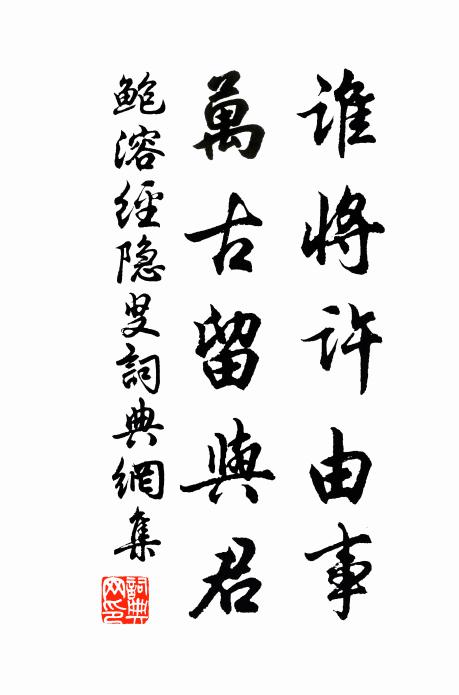 誰將許由事
萬古留與君
鮑溶經隐叟詞典網集
詞典網印